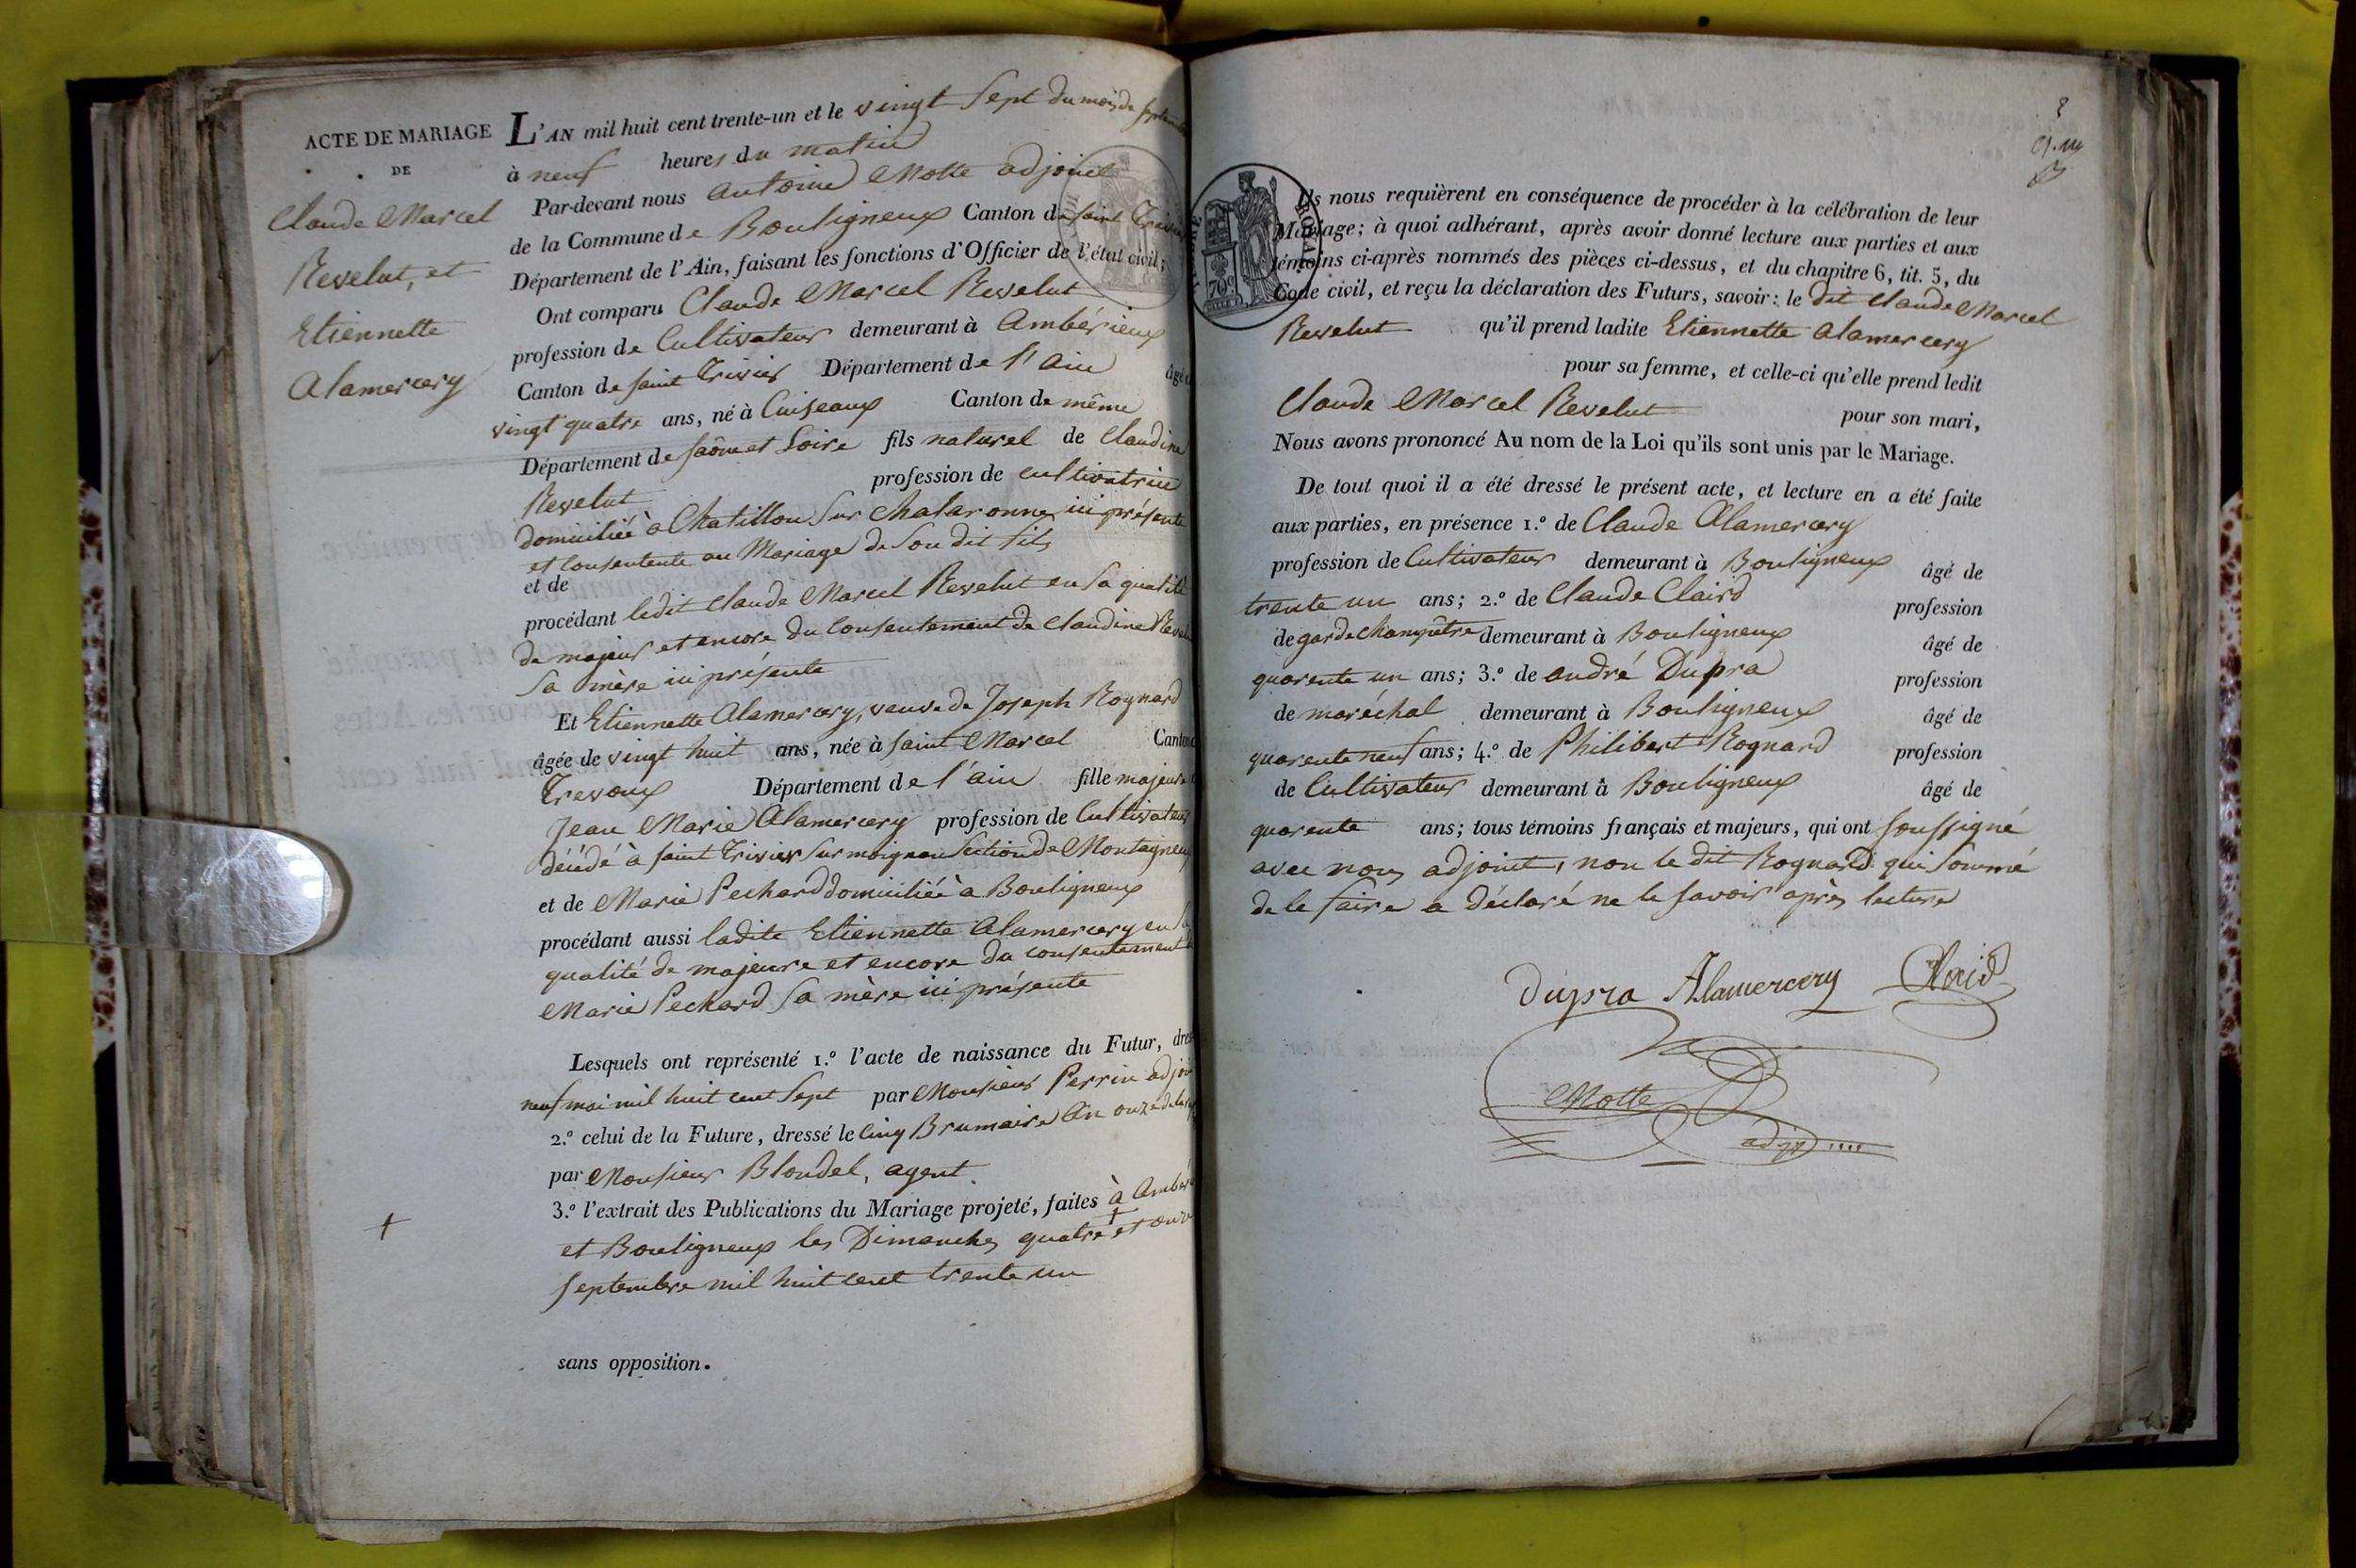 ACTE DE MARIAGE
DE
Claude Marcel
Revelut, et
Etiennette
Alamercery
L'AN mil huit cent trente-un et le vingt Sept du mois de septembre
à neuf heures du matin
Par-devant nous Antoine Motte adjoint
de la Commune de Bouligneux Canton de Saint Trivier
Département de l'Ain, faisant les fonctions d'Officier de l'état civil;
Ont comparu Claude Marcel Revelut
profession de Cultivateur demeurant à Ambérieux
Canton de Saint Trivier Département de l'Ain âgé d
vingt quatre ans, né à Cuiseaux Canton de même
Département de Saône et Loire fils naturel de Claudine
Revelut profession de cultivatrice
domiciliée à Chatillon Sur Chalaronne, ici présente
et Consentente au Mariage de Son dit fils
et de
procédant ledit Claude Marcel Revelut en Sa qualité
de majeur et encore du Consentement de Claudine Revelut
Sa mère ici présente
Et Etiennette Alamercery, veuve de Joseph Rognard
âgée de vingt huit ans, née à Saint Marcel Canton d
Trevoux Département de l'ain fille majeure
Jean Marie Alamercery profession de Cultivateur
décédé à Saint Trivier Sur moignan Section de Montagneux
et de Marie Pechard domiciliée à Bouligneux
procédant aussi ladite Etiennette Alamercery en Sa
qualité de majeure et encore du consentement
Marie Pechard Sa mère ici présente
Lesquels ont représenté 1.º l'acte de naissance du Futur, dres
neuf mai mil huit cent Sept par Monsieur Perrin adjoi
2.º celui de la Future, dressé le Cinq Brumaire An onze de la
par Monsieur Blondel, agent.
3.º l'extrait des Publications du Mariage projeté, faites à Ambér
+
et Bouligneux les Dimanches quatre et onze
septembre mil huit cent trente un
sans opposition.
ROYAL
70c
Ils nous requièrent en conséquence de procéder à la célébration de leur
Mariage; à quoi adhérant, après avoir donné lecture aux parties et aux
témoins ci-après nommés des pièces ci-dessus, et du chapitre 6, tit. 5, du
Code civil, et reçu la déclaration des Futurs, savoir: le dit Claude Marcel
Revelut qu'il prend ladite Etiennette Alamercery
pour sa femme, et celle-ci qu'elle prend ledit
Claude Marcel Revelut pour son mari,
Nous avons prononcé Au nom de la Loi qu'ils sont unis par le Mariage.
De tout quoi il a été dressé le présent acte, et lecture en a été faite
aux parties, en présence 1.º de Claude Alamercery
profession de Cultivateur demeurant à Bouligneux âgé de
trente un ans; 2.º de Claude Claird profession
de garde Champêtre demeurant à Bouligneux âgé de
quarente un ans; 3.º de André Dupra profession
de maréchal demeurant à Bouligneux âgé de
quarente neuf ans; 4.º de Philibert Rognard profession
de Cultivateur demeurant à Bouligneux âgé de
quarente ans; tous témoins français et majeurs, qui ont soussigné
avec nous adjoint, non le dit Rognard qui Sommé
de le faire a déclaré ne le Savoir après lecture
Dupra Alamercery Claird
Motte
adjt